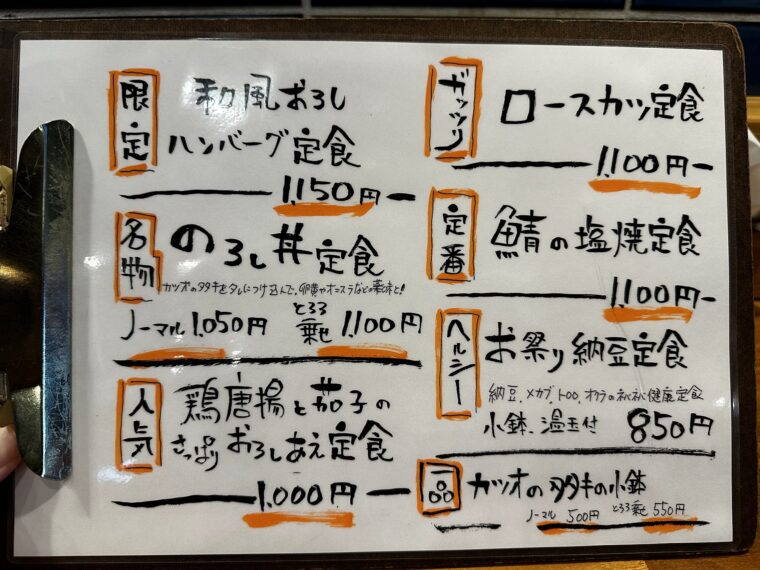 限定
和風おろし
ハンバーグ定食
1,150円
名物
のろし丼定食
カツオのタタキをタレにつけ込んで、卵黄やオニスラなどの薬味と!
ノーマル 1,050円 とろろ乗せ 1,100円
人気
鶏唐揚と茄子の
さっぱりおろしあえ定食
1,000円
ガッツリ
ロースカツ定食
1,100円
定番
鯖の塩焼定食
1,100円
ヘルシー
お祭り納豆定食
納豆、メカブ、トロロ、オクラのネバネバ健康定食
小鉢、温玉付 850円
一品
カツオのタタキの小鉢
ノーマル 500円 とろろ乗せ 550円